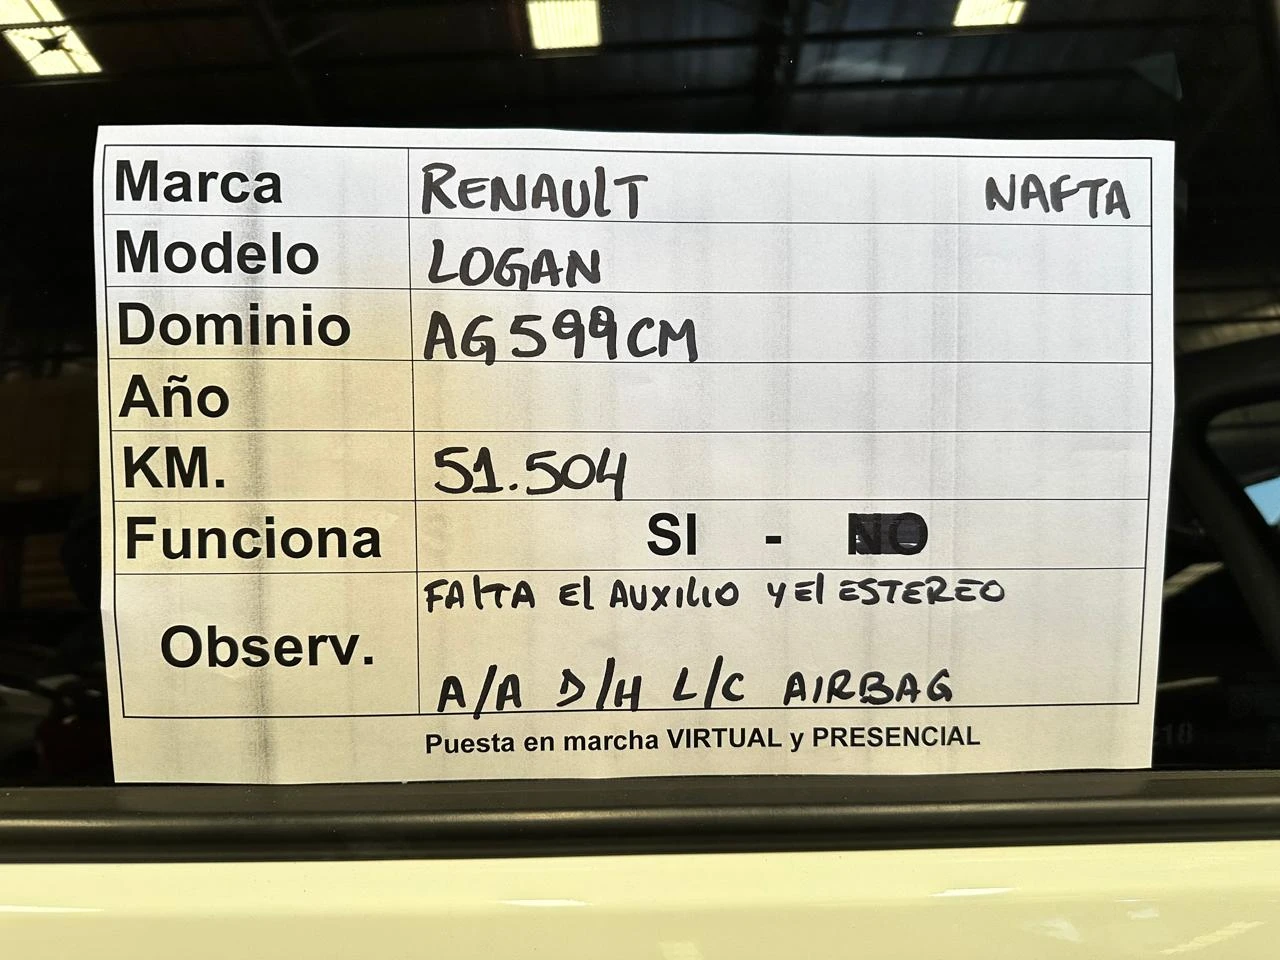 Marca RENAULT NAFTA
Modelo LOGAN
Dominio AG599CM
Año
KM. 51.504
Funciona SI - NO
Observ. FALTA El AUXILIO y El ESTEREO
A/A D/H L/C AIRBAG
Puesta en marcha VIRTUAL y PRESENCIAL
18